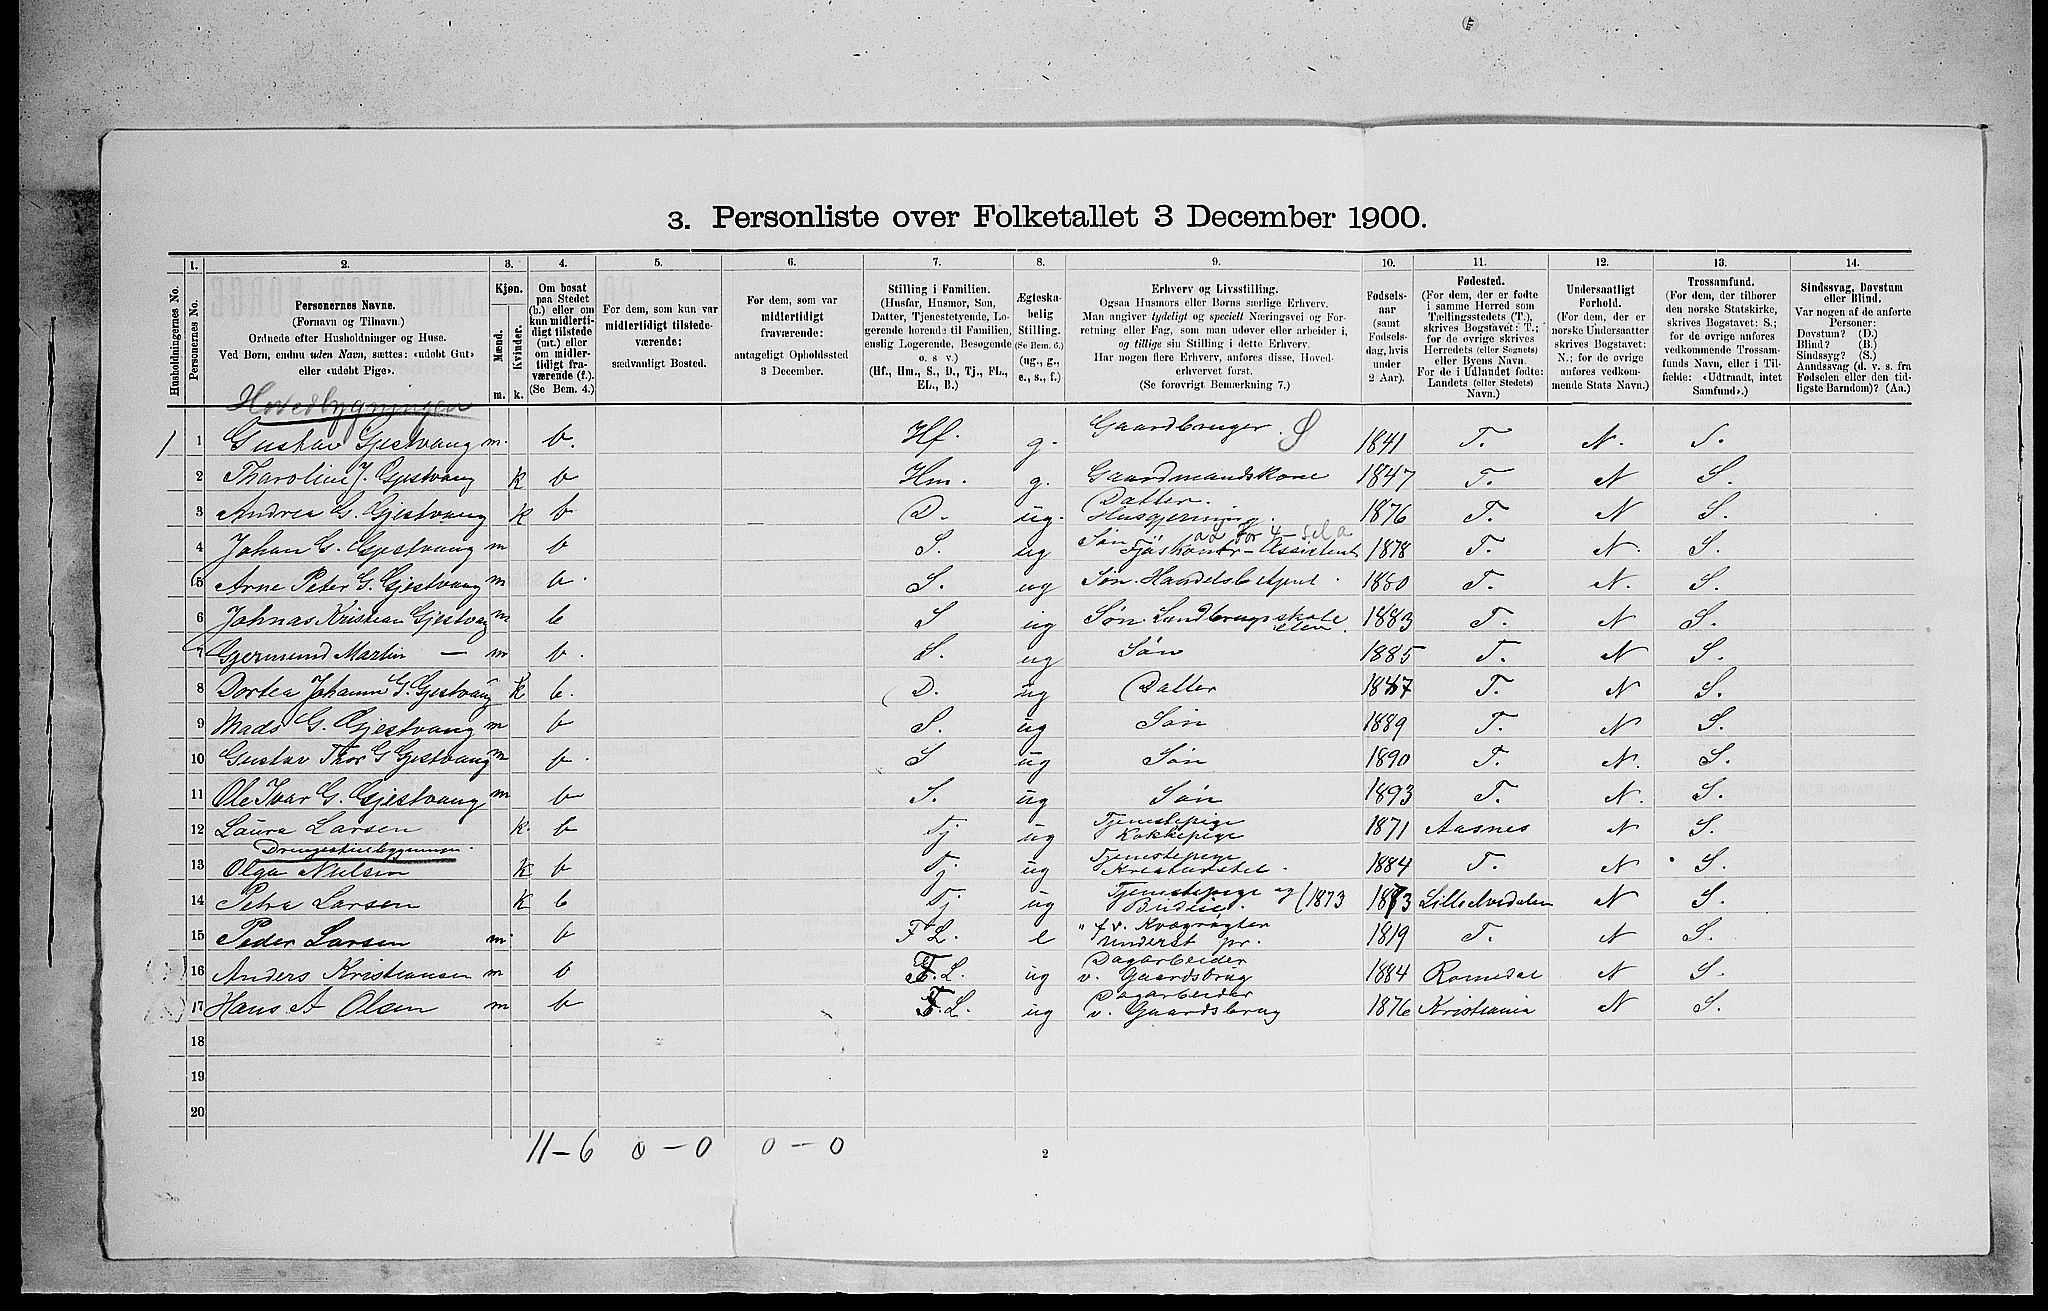 3. Personliste over Folketallet 3 December 1900.
1. 2. 3. 4. 5. 6. 7. 8. 9. 10. 11. 12. 13. 14.
Husholdningernes No.
Personernes No.
Personernes Navne.
(Fornavn og Tilnavn.)
Ordnede efter Husholdninger og Huse.
Ved Børn, endnu uden Navn, sættes: «udøbt Gut»
eller «udøbt Pige».
Kjøn.
Mænd.
Kvinder.
m. k.
Om bosat
paa Stedet
(b.) eller om
kun midlerti-
digt tilstede
(mt.) eller
om midler-
tidigt fra-
værende (f.).
(Se Bem. 4.)
For dem, som kun var
midlertidigt tilstede-
værende:
sædvanligt Bosted.
For dem, som var
midlertidigt
fraværende:
antageligt Opholdssted
3 December.
Stilling i Familien.
(Husfar, Husmor, Søn,
Datter, Tjenestetyende, Lo-
gerende hørende til Familien,
enslig Logerende, Besøgende
o. s v.)
(Hf., Hm., S., D., Tj., FL.,
EL., B.)
Ægteska-
belig
Stilling.
(Se Bem. 6.)
(ug., g.,
e., s., f.)
Erhverv og Livsstilling.
Ogsaa Husmors eller Børns særlige Erhverv.
Man angiver tydeligt og specielt Næringsvei og For-
retning eller Fag, som man udøver eller arbeider i,
og tillige sin Stilling i dette Erhverv.
Har nogen flere Erhverv, anføres disse, Hoved-
erhvervet først.
(Se forøvrigt Bemærkning 7.)
Fødsels-
aar
(samt
Fødsels-
dag, hvis
under
2 Aar).
Fødested.
(For dem, der er fødte
i samme Herred som
Tællingsstedets (T.),
skrives Bogstavet: T.;
for de øvrige skrives
Herredets (eller Sognets)
eller Byens Navn.
For de i Udlandet fødte:
Landets (eller Stedets)
Navn.)
Undersaatligt
Forhold.
(For dem, der er
norske Undersaatter
skrives Bogstavet:
N.; for de øvrige
anføres vedkom-
mende Stats Navn.)
Trossamfund.
(For dem, der tilhører
den norske Statskirke,
skrives Bogstavet: S.;
for de øvrige anføres
vedkommende Trossam-
funds Navn, eller i Til-
fælde: «Udtraadt, intet
Samfund».)
Sindssvag, Døvstum
eller Blind.
Var nogen af de anførte
Personer:
Døvstum? (D.)
Blind? (B.)
Sindssyg? (S.)
Aandssvag (d. v. s. fra
Fødselen eller den tid-
ligste Barndom)? (Aa.)
Hovedbygningen
1 1 Gustav Gjestvang m. b. Hf. g. Gaardbruger. S 1841 T. N. S.
2 Tharoline J. Gjestvang k b Hm. g. Gaardmandskone 1847 T. N S.
3 Andrea G. Gjestvang k b D. ug. Datter. Husgjerning. 1876 T. N S.
4 Johan G. Gjestvang m b S. ug Søn Assistent 1878 T. N. S.
5 Arne Peter G. Gjestvang m b. S. ug Søn. Handelsbetjent. 1880 T. N. S.
6 Johnas Kristian Gjestvang m b S ug Søn Landbrugsskole elev. 1883 T. N S.
7 Gjermund Martin — m b. S. ug Søn 1885 T. N S.
8 Dortea Johanne G. Gjestvang k b. D. ug Datter 1887 T. N S.
9 Mads G. Gjestvang m b S. ug Søn 1889 T. N S.
10 Gustav Thor G Gjestvang m b. S ug Søn 1890 T. N. S.
11 Ole Ivar G. Gjestvang m b S. ug Søn 1893 T. N. S.
12 Laura Larsen k. b Tj ug Tjenestepige Kokkepige 1871 Aasnes N S.
Drengestuebygningen.
13 Olga Nielsen k b Tj. ug Tjenestepige Kreaturstel. 1884 T. N S.
14 Petra Larsen k b Tj ug Tjenestepige og Budeie. (1873 1873 Lille Elvedalen N S.
15 Peder Larsen m. b FL. e f.v. Kvægrøgter Underst pr. 1819 T. N S.
16 Anders Kristiansen m b F.L. ug Dagarbeider v. Gaardsbrug 1884 Romedal N S.
17 Hans A Olsen m b F.L. ug Dagarbeider v. Gaardsbrug 1876 Kristiania N S.
18
19
20
11-6 0-0 0-0
2